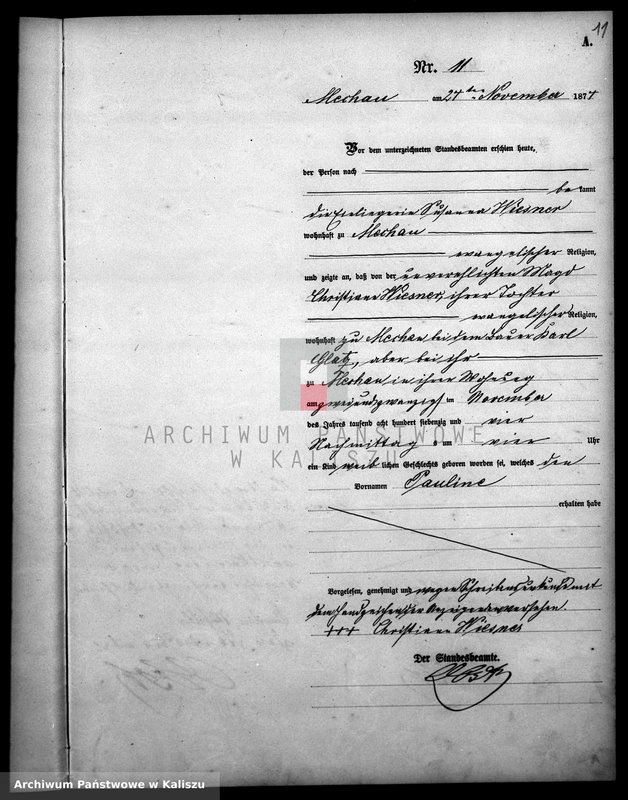 11
A.
Nr. 11
Mechau am 24ten November 1874
Vor dem unterzeichneten Standesbeamten erschien heute,
der Person nach
be kannt
die Susanna Wiesner
wohnhaft zu Mechau
evangelischer Religion,
und zeigte an, daß von der unverehlichten Magd
Christiane Wiesner, ihrer Tochter
evangelischer Religion,
wohnhaft zu Mechau bei dem Bauer Karl
Glatz, aber bei ihr
zu Mechau in ihrer Wohnung
am zweiundzwanzigst im November
des Jahres tausend acht hundert siebenzig und vier
Nachmittag s um vier Uhr
ein Kind weib lichen Geschlechts geboren worden sei, welches den
Vornamen Pauline
erhalten habe
Vorgelesen, genehmigt und wegen Schreibensunkunde mit
dem Handzeichen der Anzeigenden versehen.
+++ Christiane Wiesner
Der Standesbeamte.
ARCHIWUM PAŃSTWOWE
W KALISZU
Archiwum Państwowe w Kaliszu